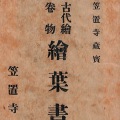 笠置寺蔵宝
古代絵
巻物
繪葉書
笠置寺